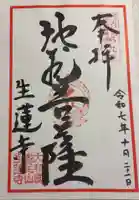 奉拝
令和七年十月二十一日
地蔵菩薩
生蓮寺